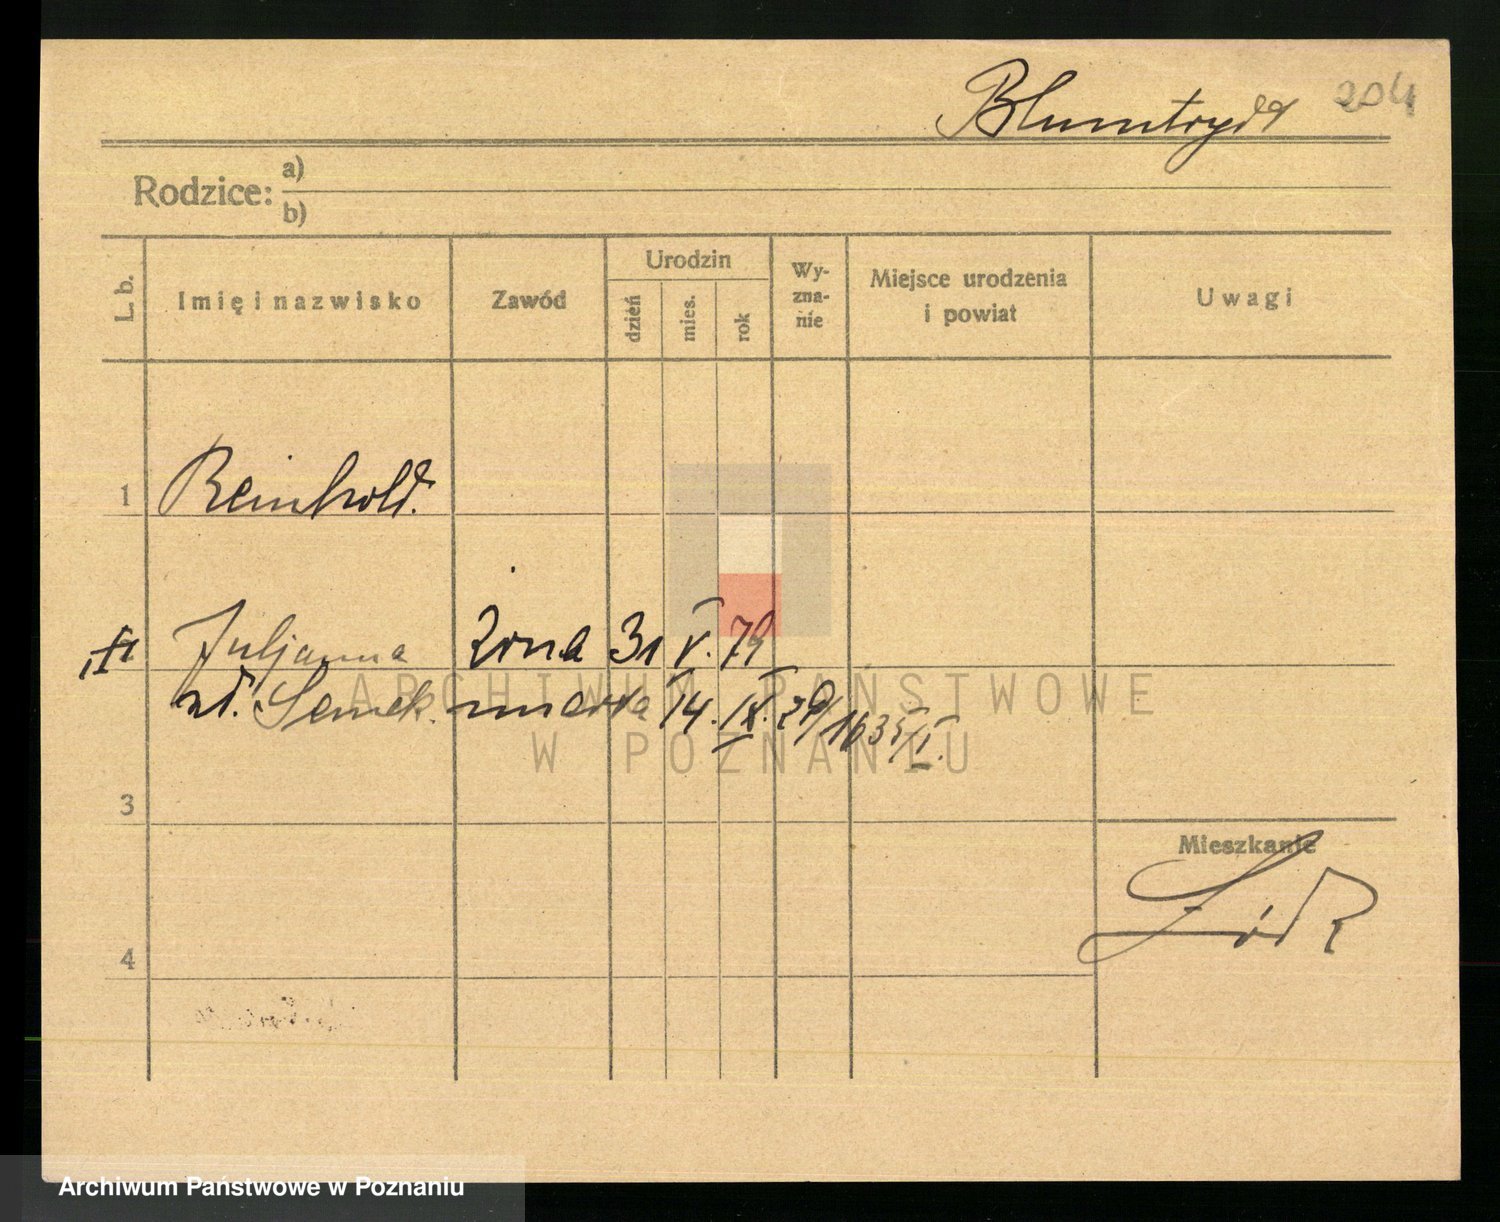 Blumtrydt 204
Rodzice: a)
b)
L. b. Imię i nazwisko Zawód Urodzin dzień mies. rok Wy-zna-nie Miejsce urodzenia i powiat Uwagi
1 Reinhold.
Juljanna żona 31 V. 79
zd. Semek. zmarła 14. IX. 29/1635/I.
ARCHIWUM PAŃSTWOWE
W POZNANIU
3
Mieszkanie
Łódź
4
Archiwum Państwowe w Poznaniu